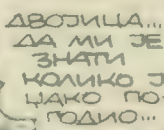 ДВОЈИЦА...
ДА МИ ЈЕ
ЗНАТИ
КОЛИКО Ј
ЏАКО ПО-
ГОДИО...